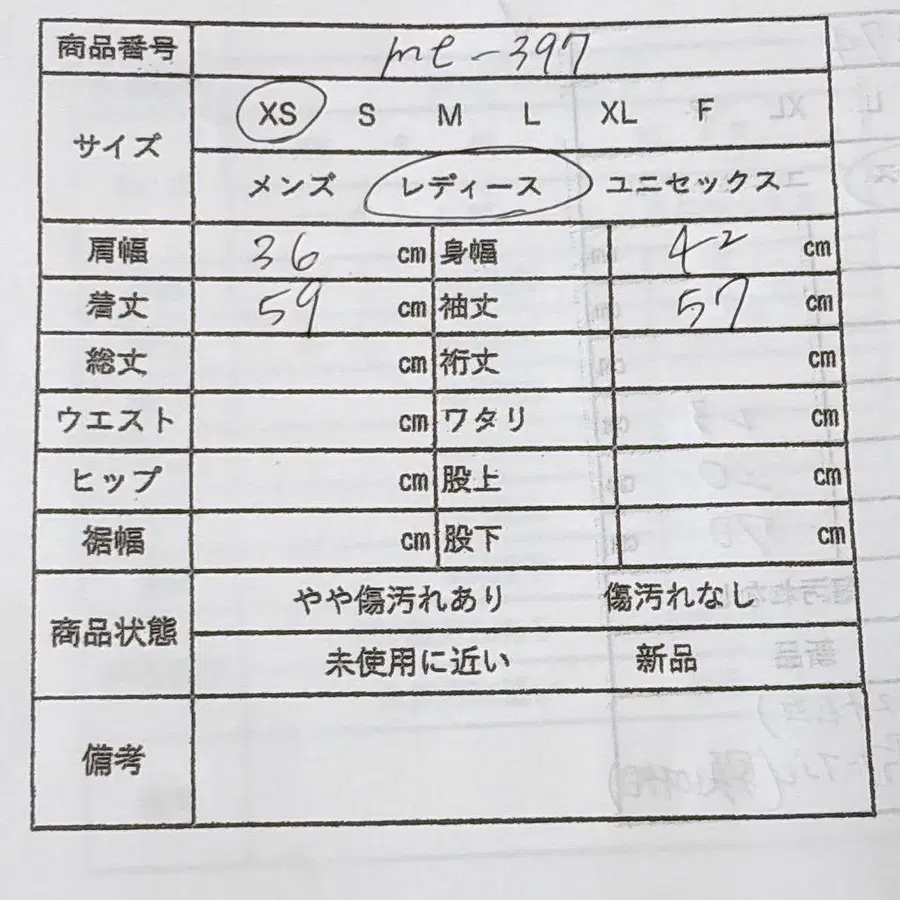 商品番号 me-397
サイズ XS S M L XL F
メンズ レディース ユニセックス
肩幅 36 cm 身幅 42 cm
着丈 59 cm 袖丈 57 cm
総丈 cm 裄丈 cm
ウエスト cm ワタリ cm
ヒップ cm 股上 cm
裾幅 cm 股下 cm
商品状態 やや傷汚れあり 傷汚れなし
未使用に近い 新品
備考